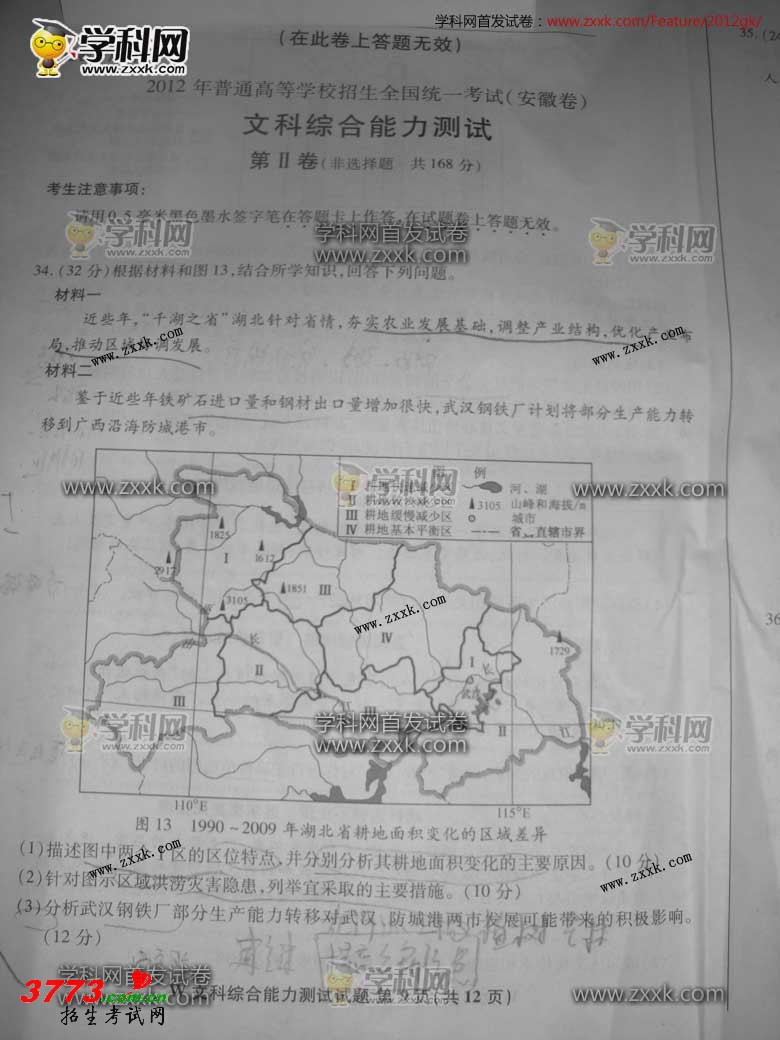 学科网首发试卷：www.zxxk.com/Feature/2012gk/
学科网
www.zxxk.com
(在此卷上答题无效)
35. (2
人
2012年普通高等学校招生全国统一考试(安徽卷)
文科综合能力测试
第Ⅱ卷(非选择题 共168分)
考生注意事项：
请用0.5毫米黑色墨水签字笔在答题卡上作答,在试题卷上答题无效。
学科网
www.zxxk.com
学科网首发试卷
www.zxxk.com
学科网
www.zxxk.com
34. (32分)根据材料和图13,结合所学知识,回答下列问题。
材料一
近些年,“千湖之省”湖北针对省情,夯实农业发展基础,调整产业结构,优化产 布
局,推动区域 调发展。
www.zxxk.com
www.zxxk.com
材料二
鉴于近些年铁矿石进口量和钢材出口量增加很快,武汉钢铁厂计划将部分生产能力转
移到广西沿海防城港市。
学科网首发试卷
www.zxxk.com
学科网
www.zxxk.com
学科网首发试卷
www.zxxk.com
图 例
Ⅰ 耕地
Ⅱ 耕地
Ⅲ 耕地缓慢减少区
Ⅳ 耕地基本平衡区
河、湖
3105 山峰和海拔/m
城市
省 直辖市界
1825
Ⅰ
1612
2917
3105
1851
Ⅲ
www.zxxk.com
Ⅳ
长
Ⅱ
Ⅲ
Ⅰ
长
武汉
1729
Ⅲ
Ⅱ
学科网
www.zxxk.com
学科网首发试卷
www.zxxk.com
学科网
www.zxxk.com
36
110°E
115°E
图13 1990~2009年湖北省耕地面积变化的区域差异
(1)描述图中两个Ⅰ区的区位特点,并分别分析其耕地面积变化的主要原因。(10分)
(2)针对图示区域洪涝灾害隐患,列举宜采取的主要措施。(10分)
(3)分析武汉钢铁厂部分生产能力转移对武汉、防城港两市发展可能带来的积极影响。
(12分)
www.zxxk.com
www.zxxk.com
学科网首发试卷
www.zxxk.com
学科网
www.zxxk.com
学科网首发试卷
www.zxxk.com
文科综合能力测试试题 第9页(共12页)
3773.com.cn
招生考试网